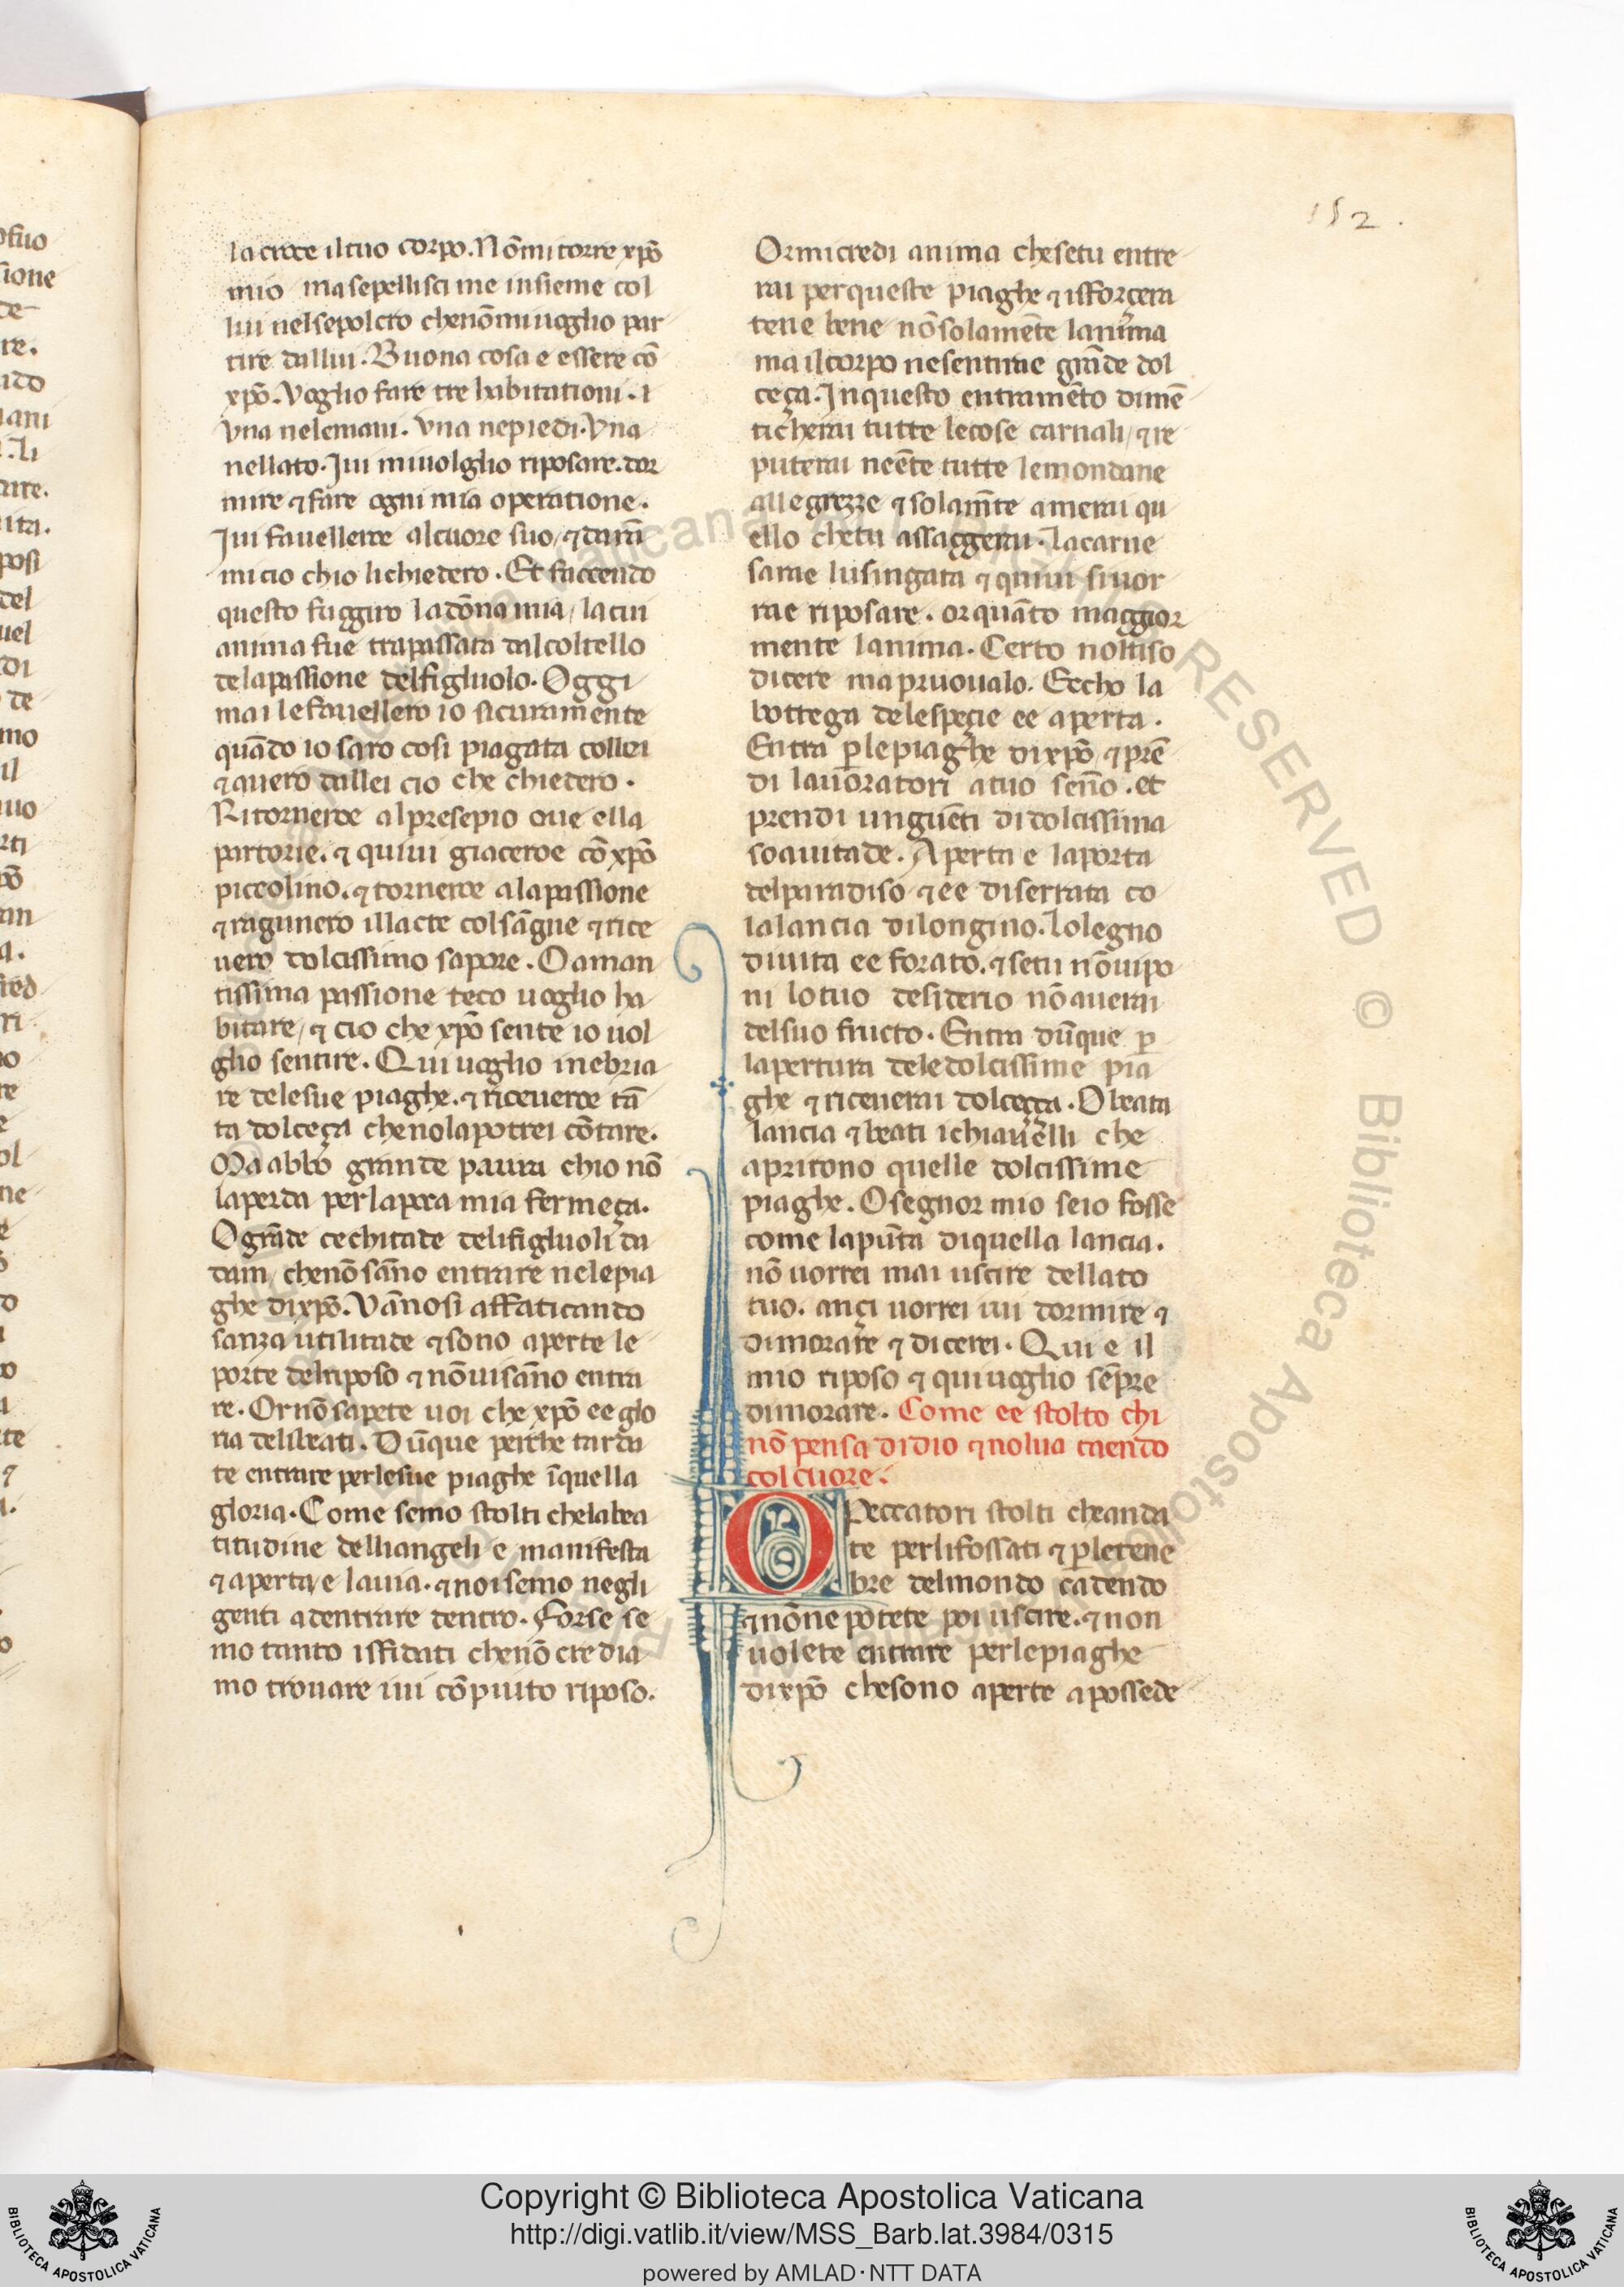 152.
la croce il tuo corpo. Nōmi torre xp̄o
mio ma sepellisci me insieme col
lui nelsepolcro chenōmi uoglio par
tire dallui. Buona cosa e essere cō
xp̄o. Voglio fare tre habitationi. i
Vna nelemani. Vna nepiedi. Vna
nellato. Jui miuolglio riposare. dor
mire ⁊ fare ogni mia operatione.
Jui fauellerœ alcuore suo, ⁊ dāra
mi cio chio lichiedero. Et faccendo
questo fuggiro la dōna mia, la cui
anima fue trapassata dalcoltello
delapassione delfigluolo. Oggi
mai le fauellero io sicuramente
quādo io saro cosi piagata collei
⁊ auero dallei cio che chiedero.
Ritornerœ alpresepio oue ella
partorie. ⁊ quiui giaceroe cō xp̄o
piccolino. ⁊ tornerœ alapassione
⁊ ragunero illacte colsāgue ⁊ rice
uero dolcissimo sapore. O aman
tissima passione teco uoglio ha
bitare, ⁊ cio che xp̄o sente io uol
glio sentire. Qui uoglio inebria
re delesue piaghe. ⁊ riceuerœ tā
ta dolceça chenolapotrei cōtare.
Ma abbo grande paura chio nō
laperda perlapoca mia fermeça.
O grāde cechitade delifigluoli da
dam, chenō sāno entrare nelepia
ghe dixp̄o. Vānosi affaticando
sanza utilitade ⁊ sono aperte le
porte delriposo ⁊ nōuisāno entra
re. Or nō sapete uoi che xp̄o ee glo
ria delibeati. Dūque perche tarda
te entrare perlesue piaghe īquella
gloria. Come semo stolti chelabea
titudine delliangeli e manifesta
⁊ aperta, e lauia. ⁊ noi semo negli
genti adentrare dentro. Forse se
mo tanto isfidati chenō credia
mo trouare iui cōpiuto riposo.
Ormicredi anima chesetu entre
rai perqueste piaghe ⁊ isforçera
tene bene nōsolamēte lanima
ma ilcorpo nesentirae grāde dol
ceça. Jnquesto entramēto dimē
ticherai tutte lecose carnali, ⁊ re
puterai neēte tutte lemondane
allegrezze ⁊ solam̄te amerai qu
ello chetu assaggerai. La carne
sarae lusingata ⁊ quiui siuor
rae riposare. or quāto maggior
mente lanima. Certo noltiso
dicere ma pruoualo. Eccho la
bottega delespeçie ee aperta.
Entra p̱lepiaghe dixp̄o ⁊ prē
di lauoratori atuo sēno. et
prendi unguēti didolcissima
soauitade. Aperta e laporta
delparadiso ⁊ ee diserrata co
lalancia dilongino. Lolegno
diuita ee forato. ⁊ setu nōuipo
ni lotuo desiderio nōauerai
delsuo fructo. Entra dūque p̱
lapertura deledolcissime pia
ghe ⁊ riceuerai dolceçça. O beata
lancia ⁊ beati ichiauelli che
aprirono quelle dolcissime
piaghe. O segnor mio seio fosse
come lapūta diquella lancia.
nō uorrei mai uscire dellato
tuo. ançi uorrei iui dormire ⁊
dimorare ⁊ dicerei. Qui e il
mio riposo ⁊ qui uoglio sēpre
dimorare. Come ee stolto chi
nō pensa didio ⁊ nolua caendo
colcuore.
O Peccatori stolti cheanda
te perlifossati ⁊ p̱letene
bre delmondo cadendo
⁊ nōne potete poi uscire. ⁊ non
uolete entrare perlepiaghe
dixp̄o chesono aperte apossede
Copyright © Biblioteca Apostolica Vaticana
http://digi.vatlib.it/view/MSS_Barb.lat.3984/0315
powered by AMLAD·NTT DATA
BIBLIOTECA APOSTOLICA VATICANA
BIBLIOTECA APOSTOLICA VATICANA